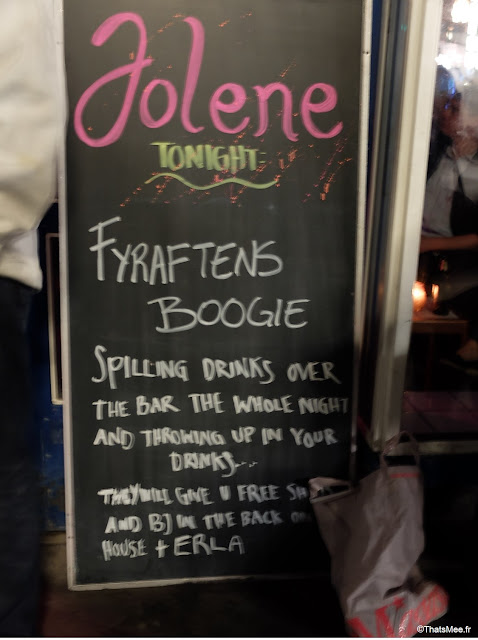 Jolene
TONIGHT
FYRAFTENS
BOOGIE
SPILLING DRINKS OVER
THE BAR THE WHOLE NIGHT
AND THROWING UP IN YOUR
DRINKS...
THEY WILL GIVE U FREE
AND BJ IN THE BACK
HOUSE + ERLA
©ThatsMee.fr